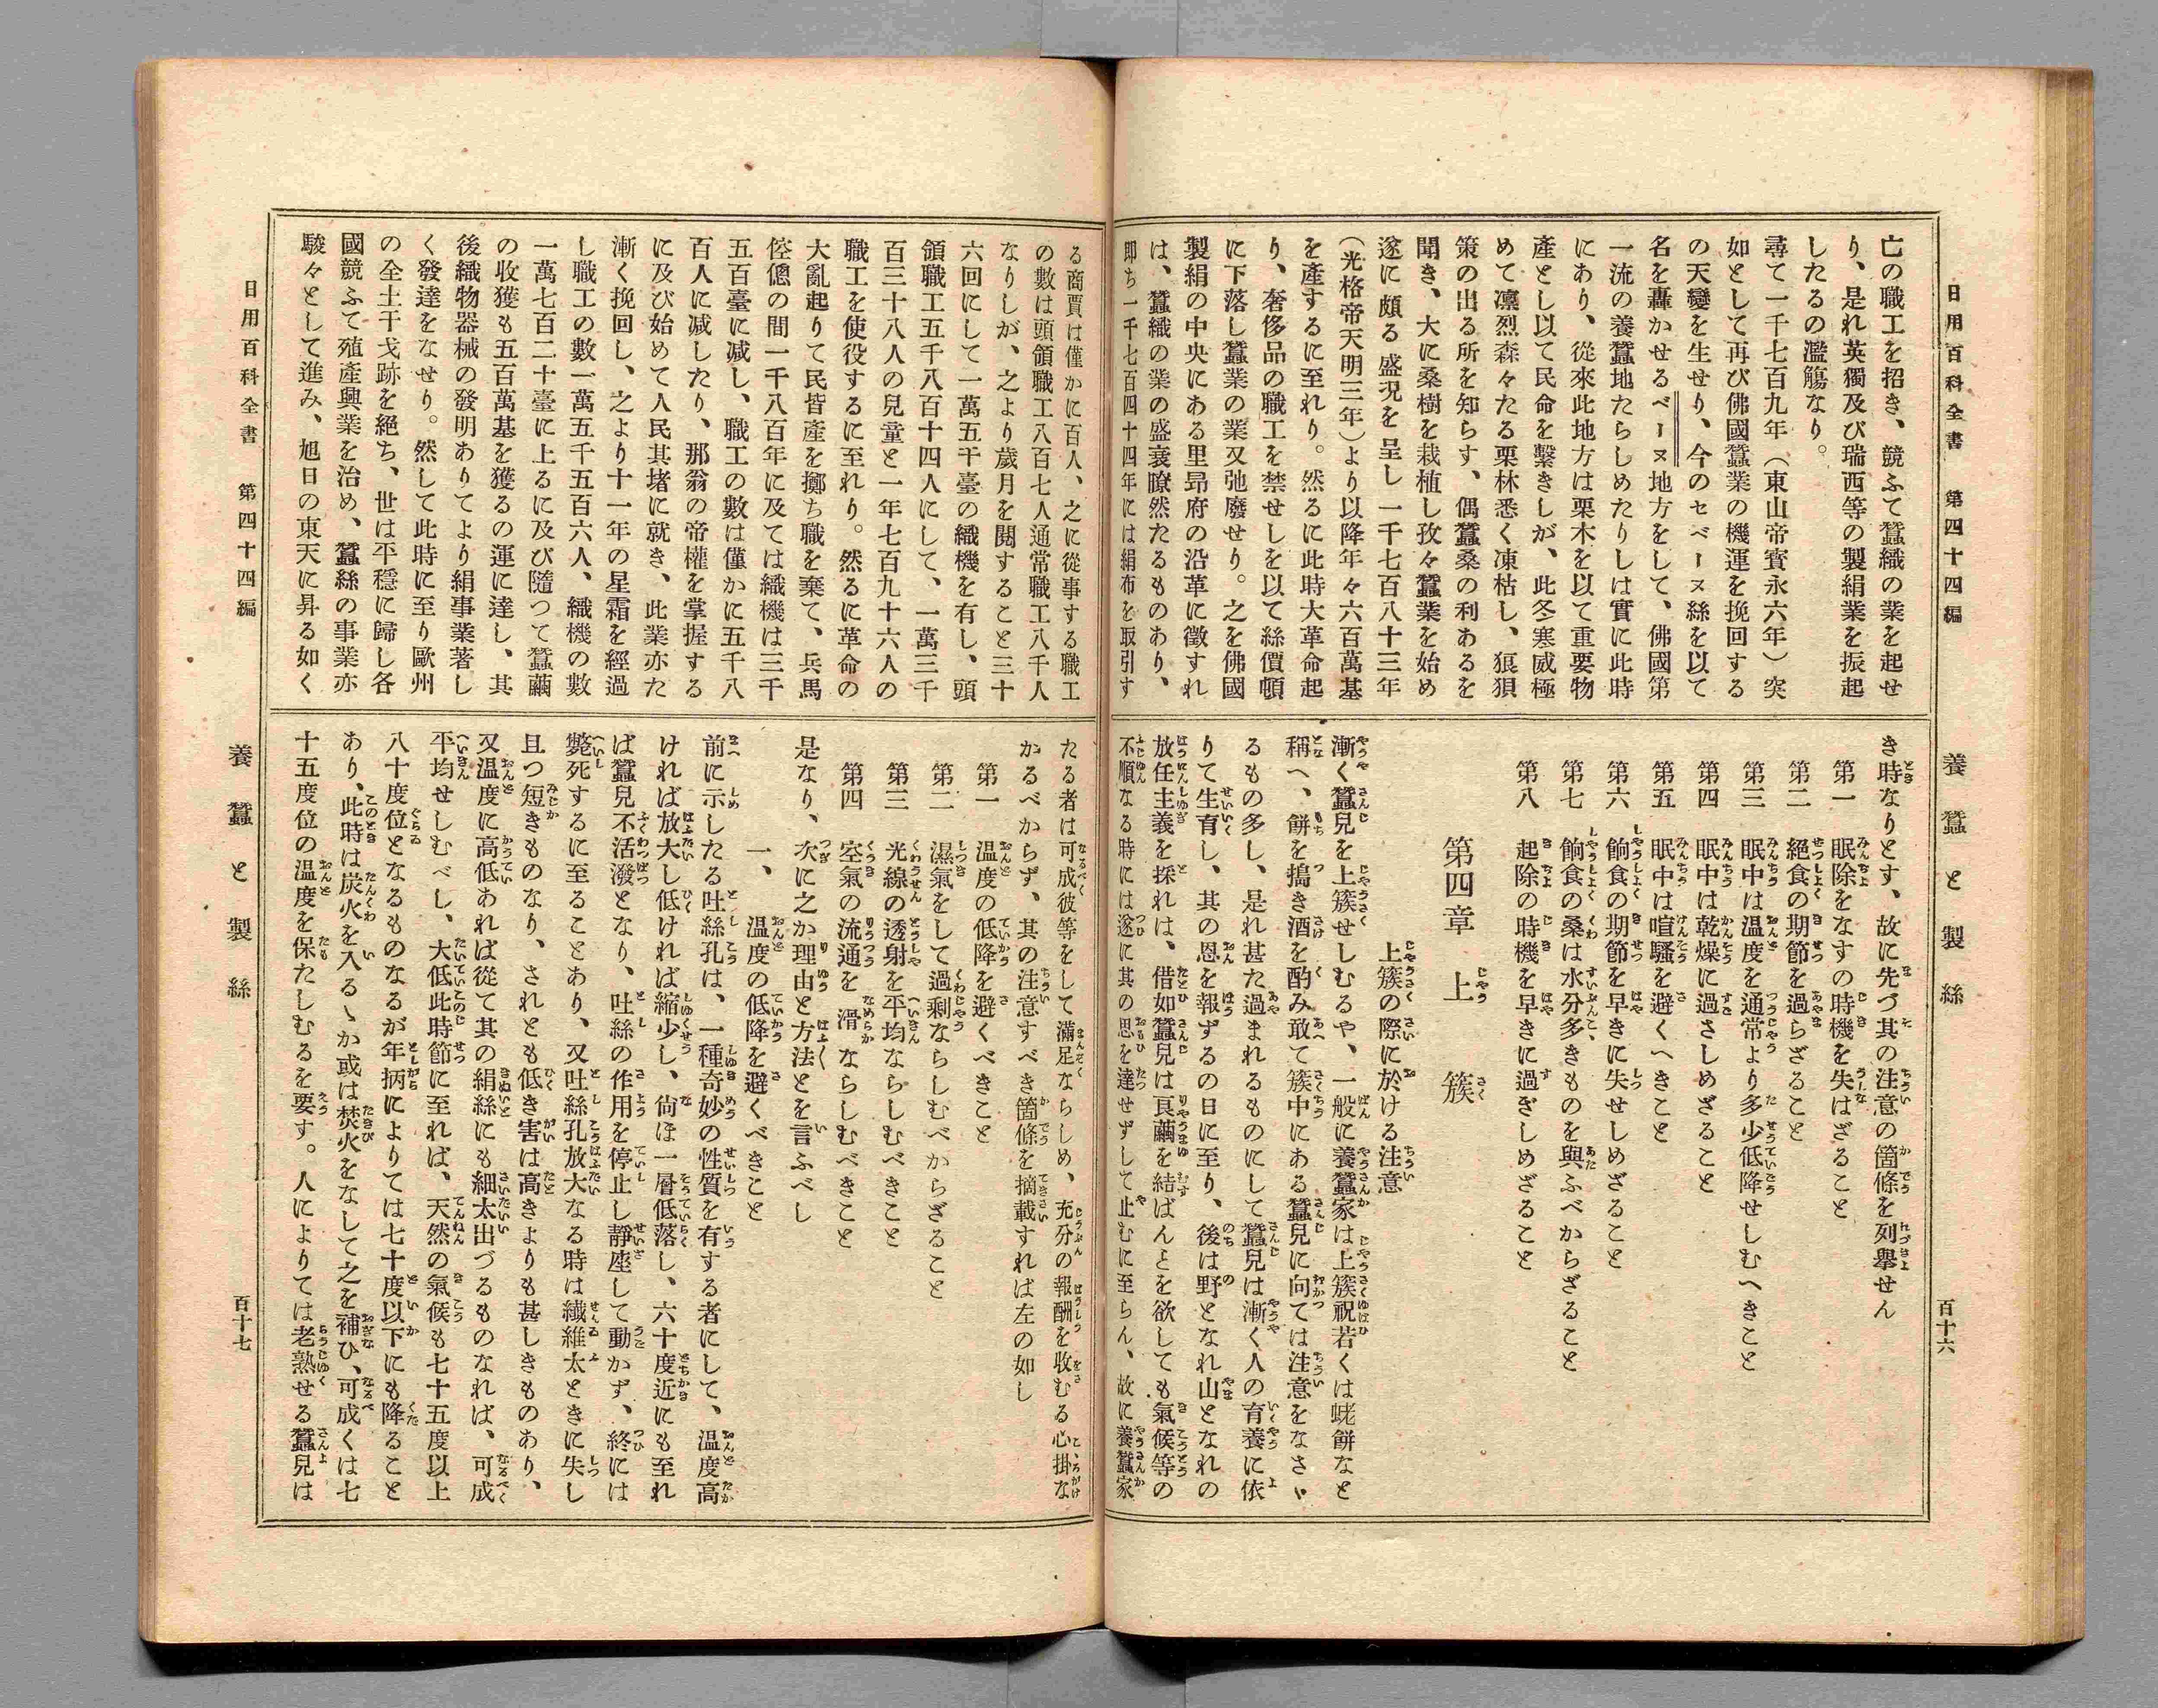 日用百科全書　第四十四編
養蠶と製絲
百十六
亡の職工を招き、競ふて蠶織の業を起せ
り、是れ英獨及び瑞西等の製絹業を振起
したるの濫觴なり。
尋て一千七百九年（東山帝寳永六年）突
如として再び佛國蠶業の機運を挽回する
の天變を生せり、今のセベーヌ絲を以て
名を轟かせるベーヌ地方をして、佛國第
一流の養蠶地たらしめたりしは實に此時
にあり、從來此地方は栗木を以て重要物
產とし以て民命を繫きしが、此冬寒威極
めて凛烈森々たる栗林悉く凍枯し、狼狽
策の出る所を知らす、偶蠶桑の利あるを
聞き、大に桑樹を栽植し孜々蠶業を始め
遂に頗る盛况を呈し一千七百八十三年
（光格帝天明三年）より以降年々六百萬基
を產するに至れり。然るに此時大革命起
り、奢侈品の職工を禁せしを以て絲價頓
に下落し蠶業の業又弛廢せり。之を佛國
製絹の中央にある里昻府の沿革に徵すれ
は、蠶織の業の盛衰瞭然たるものあり、
即ち一千七百四十四年には絹布を取引す
き時なりとす、故に先づ其の注意の箇條を列擧せん
第一　眠除をなすの時機を失はざること
第二　絕食の期節を過らざること
第三　眠中は温度を通常より多少低降せしむへきこと
第四　眠中は乾燥に過さしめざること
第五　眠中は喧騷を避くへきこと
第六　餉食の期節を早きに失せしめざること
第七　餉食の桑は水分多きものを與ふべからざること
第八　起除の時機を早きに過ぎしめざること
第四章　上　簇
上簇の際に於ける注意
漸く蠶兒を上簇せしむるや、一般に養蠶家は上簇祝若くは蛯餅なと
稱へ、餅を搗き酒を酌み敢て簇中にある蠶兒に向ては注意をなさゝ
るもの多し、是れ甚た過まれるものにして蠶兒は漸く人の育養に依
りて生育し、其の恩を報ずるの日に至り、後は野となれ山となれの
放任主義を採れは、借如蠶兒は良繭を結ばんとを欲しても氣候等の
不順なる時には遂に其の思を達せずして止むに至らん、故に養蠶家
る商賈は僅かに百人、之に從事する職工
の數は頭領職工八百七人通常職工八千人
なりしが、之より歲月を閱すること三十
六回にして一萬五千臺の織機を有し、頭
領職工五千八百十四人にして、一萬三千
百三十八人の兒童と一年七百九十六人の
職工を使役するに至れり。然るに革命の
大亂起りて民皆產を擲ち職を棄て、兵馬
倥偬の間一千八百年に及ては織機は三千
五百臺に减し、職工の數は僅かに五千八
百人に减したり、那翁の帝權を掌握する
に及び始めて人民其堵に就き、此業亦た
漸く挽回し、之より十一年の星霜を經過
し職工の數一萬五千五百六人、織機の數
一萬七百二十臺に上るに及び隨つて蠶繭
の收獲も五百萬基を獲るの運に達し、其
後織物器械の發明ありてより絹事業著し
く發達をなせり。然して此時に至り歐州
の全土干戈跡を絕ち、世は平穩に歸し各
國競ふて殖產興業を治め、蠶絲の事業亦
駸々として進み、旭日の東天に昇る如く
たる者は可成彼等をして滿足ならしめ、充分の報酬を收むる心掛な
かるべからず、其の注意すべき箇條を摘載すれば左の如し
第一　温度の低降を避くべきこと
第二　濕氣をして過剩ならしむべからざること
第三　光線の透射を平均ならしむべきこと
第四　空氣の流通を滑ならしむべきこと
是なり、次に之か理由と方法とを言ふべし
一、温度の低降を避くべきこと
前に示したる吐絲孔は、一種奇妙の性質を有する者にして、温度高
ければ放大し低ければ縮少し、尙ほ一層低落し、六十度近にも至れ
ば蠶兒不活潑となり、吐絲の作用を停止し靜座して動かず、終には
斃死するに至ることあり、又吐絲孔放大なる時は纎維太ときに失し
且つ短きものなり、されとも低き害は高きよりも甚しきものあり、
又温度に高低あれば從て其の絹絲にも細太出づるものなれば、可成
平均せしむべし、大低此時節に至れば、天然の氣候も七十五度以上
八十度位となるものなるが年柄によりては七十度以下にも降ること
あり、此時は炭火を入るゝか或は焚火をなして之を補ひ、可成くは七
十五度位の温度を保たしむるを要す。人によりては老熟せる蠶兒は
日用百科全書　第四十四編
養蠶と製絲
百十七